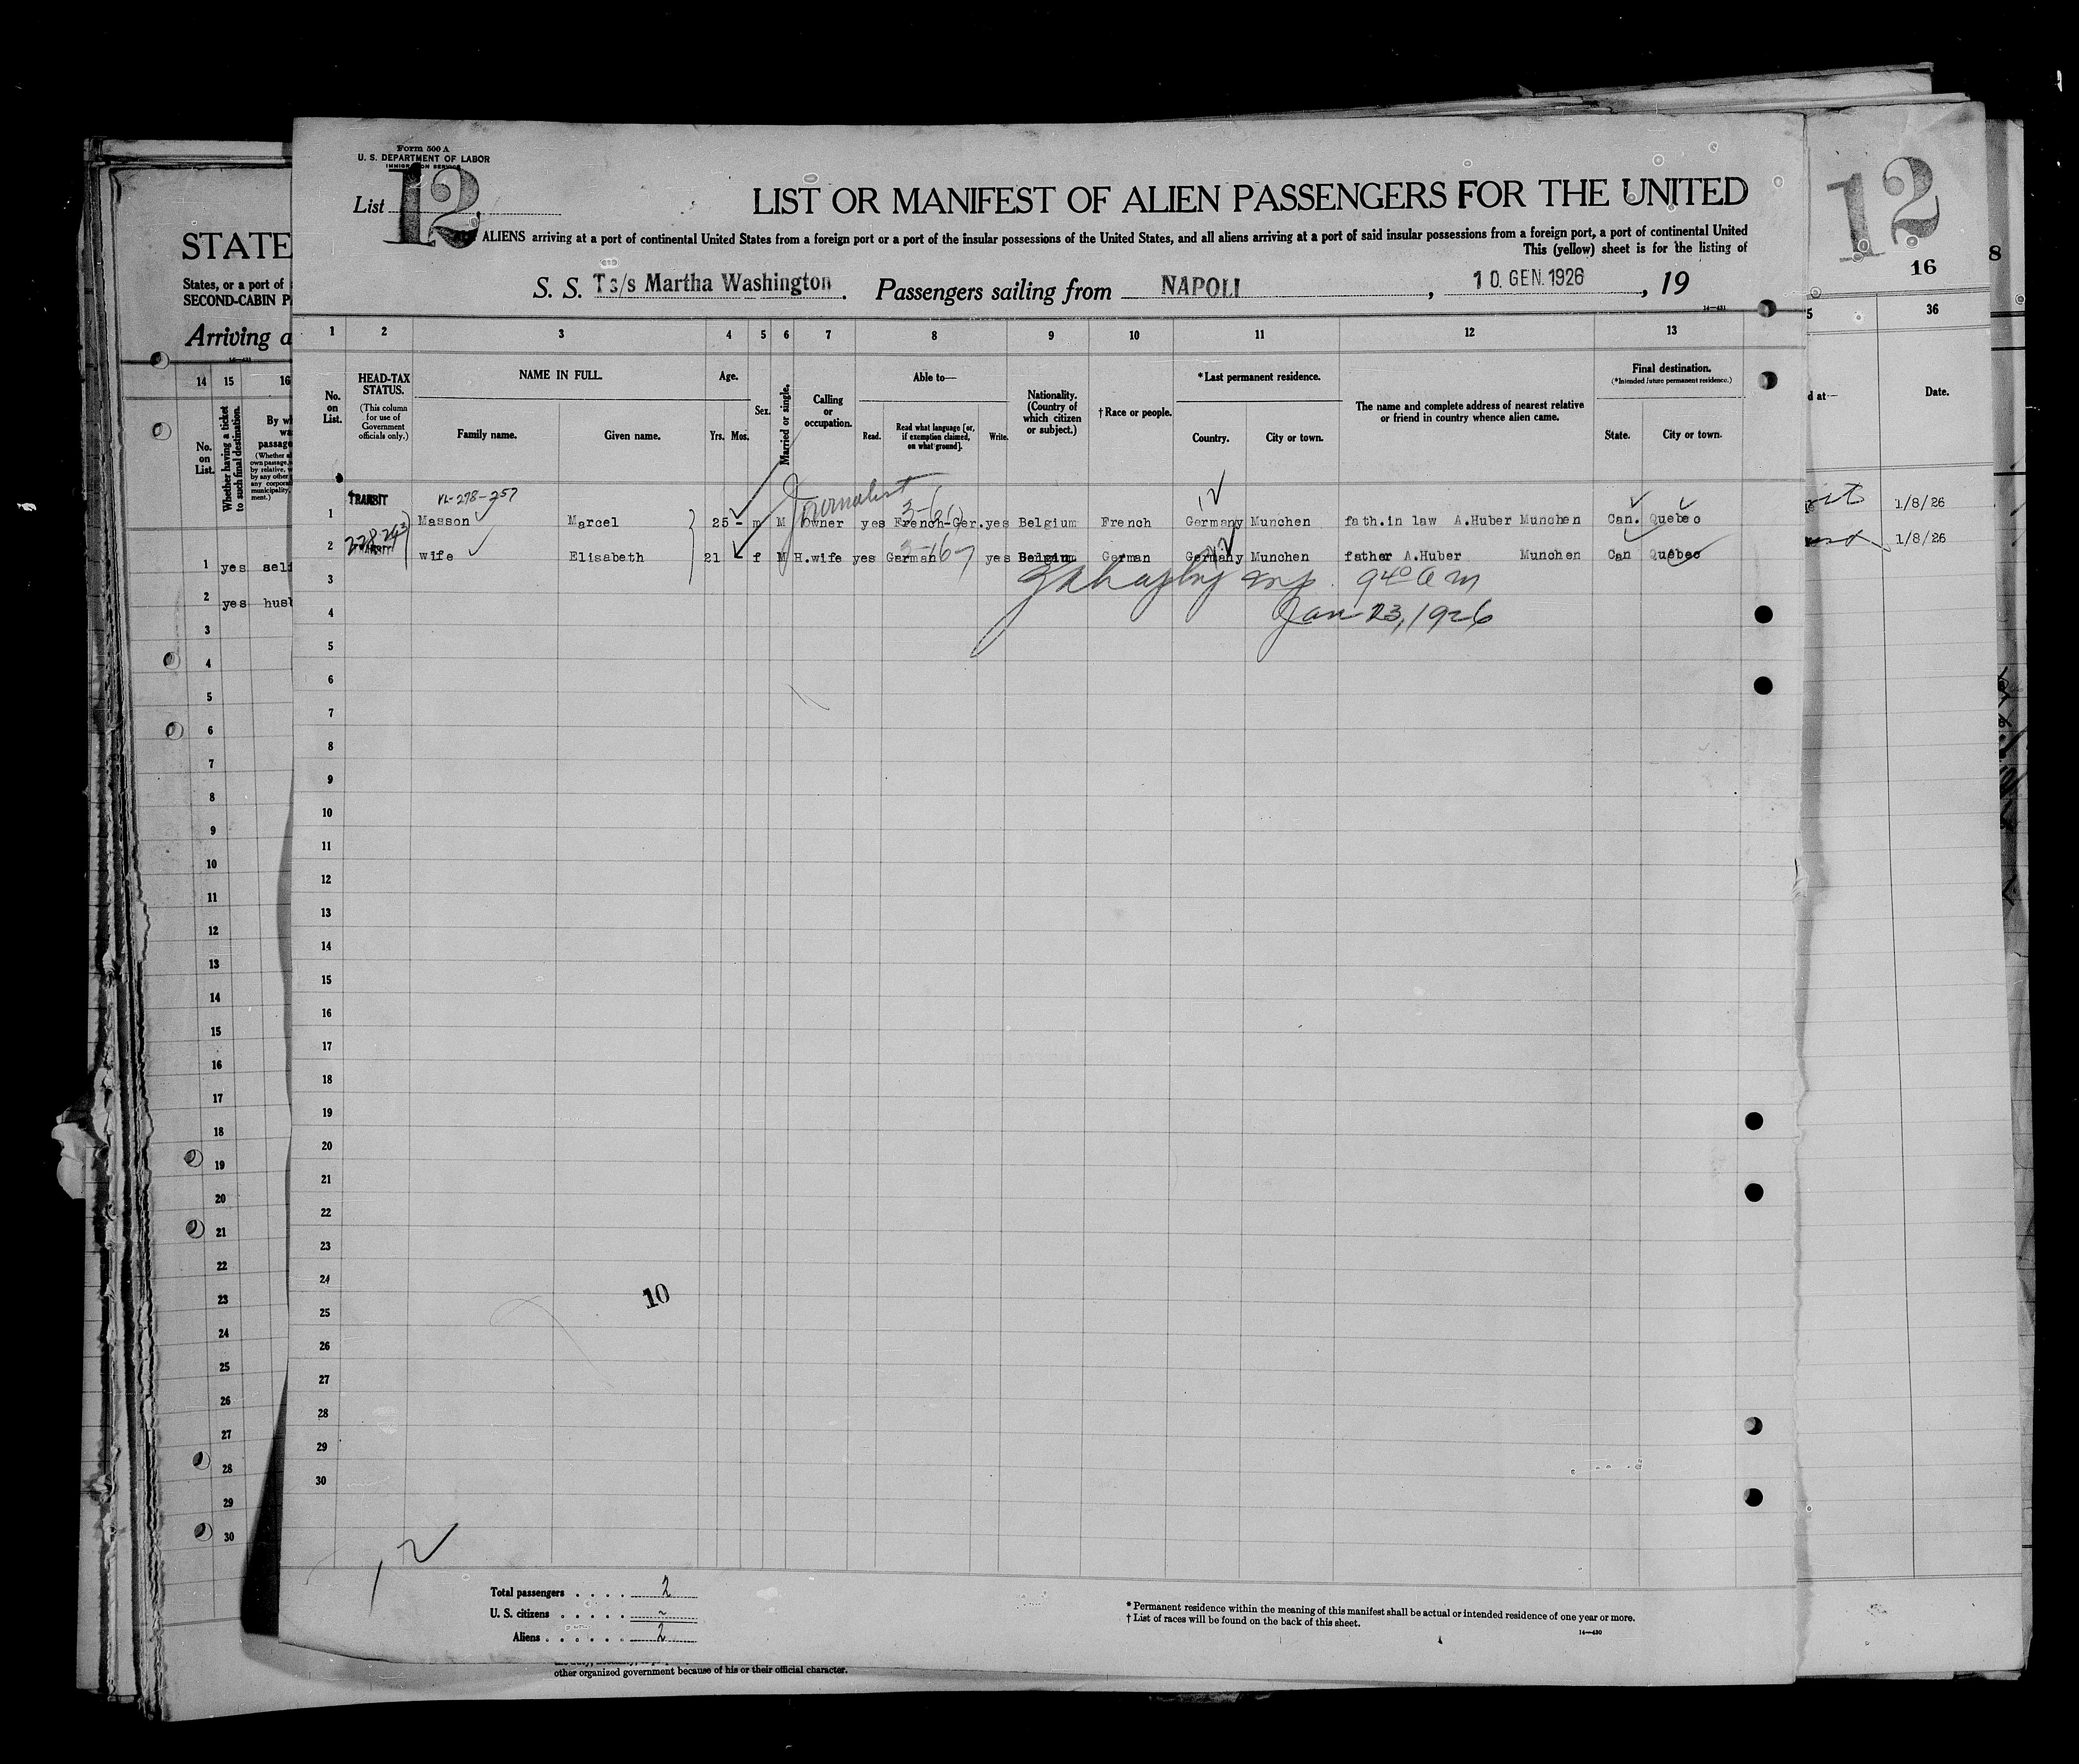 Form 500 A
U. S. DEPARTMENT OF LABOR
IMMIGRATION SERVICE
List 12
LIST OR MANIFEST OF ALIEN PASSENGERS FOR THE UNITED
ALIENS arriving at a port of continental United States from a foreign port or a port of the insular possessions of the United States, and all aliens arriving at a port of said insular possessions from a foreign port, a port of continental United
This (yellow) sheet is for the listing of
S. S. Ts/s Martha Washington. Passengers sailing from NAPOLI, 10 GEN. 1926, 19
14—431
1 2 3 4 5 6 7 8 9 10 11 12 13
No. on List.
HEAD-TAX STATUS. (This column for use of Government officials only.)
NAME IN FULL.
Family name. Given name.
Age.
Yrs. Mos.
Sex.
Married or single.
Calling or occupation.
Able to—
Read. Read what language [or, if exemption claimed, on what ground]. Write.
Nationality. (Country of which citizen or subject.)
†Race or people.
*Last permanent residence.
Country. City or town.
The name and complete address of nearest relative or friend in country whence alien came.
Final destination.
(*Intended future permanent residence.)
State. City or town.
TRANSIT VL-278-757 Journalist
1 Masson Marcel 25 - m M Owner yes French-Ger. yes Belgium French Germany Munchen fath.in law A.Huber Munchen Can. Quebec
2 TRANSIT wife Elisabeth 21 f M H.wife yes German yes Belgium German Germany Munchen father A.Huber Munchen Can Quebec
3
940 a m
4 Jan 23, 1926
5
6
7
8
9
10
11
12
13
14
15
16
17
18
19
20
21
22
23
24
10
25
26
27
28
29
30
12
Total passengers . . . . 2
U. S. citizens . . . . . ~
Aliens . . . . . . 2
* Permanent residence within the meaning of this manifest shall be actual or intended residence of one year or more.
† List of races will be found on the back of this sheet.
14—430
other organized government because of his or their official character.
STATE
States, or a port of
SECOND-CABIN P
Arriving a
14 15 16
No. on List.
Whether having a ticket to such final destination.
By wh
wa
passage
1 yes self
2 yes husb
3
4
5
6
7
8
9
10
11
12
13
14
15
16
17
18
19
20
21
22
23
24
25
26
27
28
29
30
12
16
8
5 36
d at— Date.
1/8/26
1/8/26